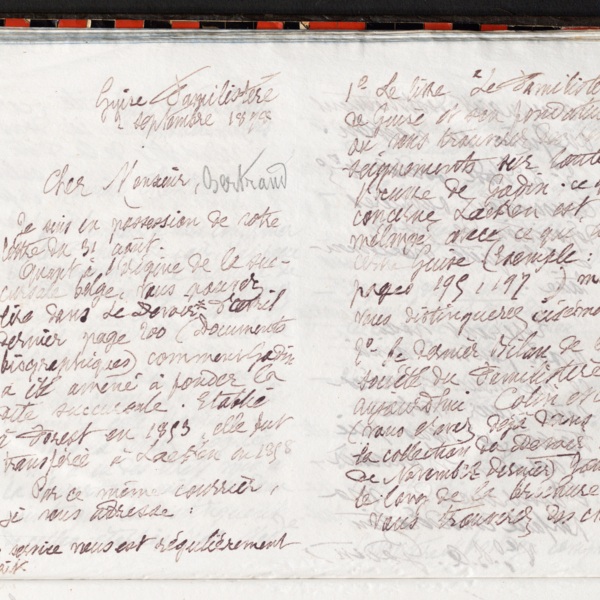 Guise Familistère
2 septembre 1898
Cher Monsieur, Bertrand
Je suis en possession de votre
lettre du 31 août.
Quant à l'origine de la suc-
cursale belge, vous pouvez
lire dans Le Devoir d'avril
dernier page 200 (Documents
biographiques) comment Godin
a été amené à fonder la
dite succursale. Etablie
à Forest en 1853, elle fut
transférée à Laeken en 1858
Par ce même courrier,
je vous adresse :
service nous est régulièrement
1o Le livre "Le Familistère
de Guise et son fondateur
où vous trouverez des
seignements sur toute
l'œuvre de Godin. Ce
concerne Laeken est
mélangé avec ce que
Guise (Exemple :
pages 195, 197)
vous distinguerez aisément
2o Le dernier bilan de la
société du Familistère
aujourd'hui Colin et
(vous l'avez déjà dans
la collection du Devoir
de Novembre dernier)
le long de la brochure
vous trouverez des